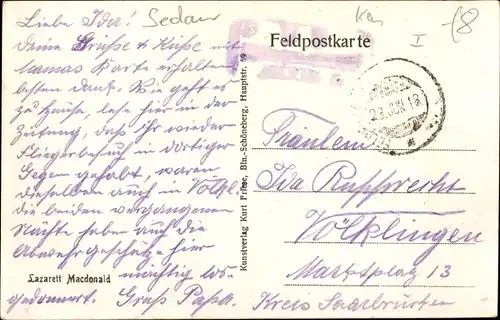 Liebe Ida! Sedan
Deine Grüße & Küße mit
Mamas Karte erhalten
besten Dank. Wie geht es
zu Hause, lese hier in der
Zeitung, daß Ihr wieder
Fliegerbesuch in dortiger
Gegend gehabt, waren
dieselben auch in Völkl.
die beiden vergangenen
Nächte haben auch die
Abwehrgeschütze hier
mächtig los-
gedonnert. Gruß Papa.
Lazarett Macdonald
Kunstverlag Kurt Friese, Bln.-Schöneberg, Hauptstr. 19
Feldpostkarte
I
18
23 JUN 18
Fräulein
Ida Rupprecht
Völklingen
Marktplatz 13
Kreis Saarbrücken